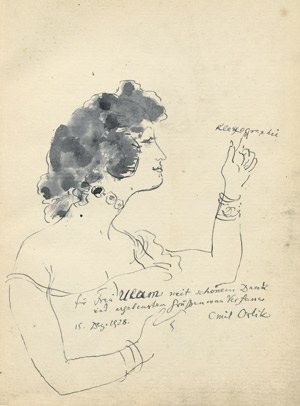 Klexographie
für Frau Ulam mit schönem Dank
und ergebensten Grüßen vom Verfasser
15. Dez. 1928.
Emil Orlik